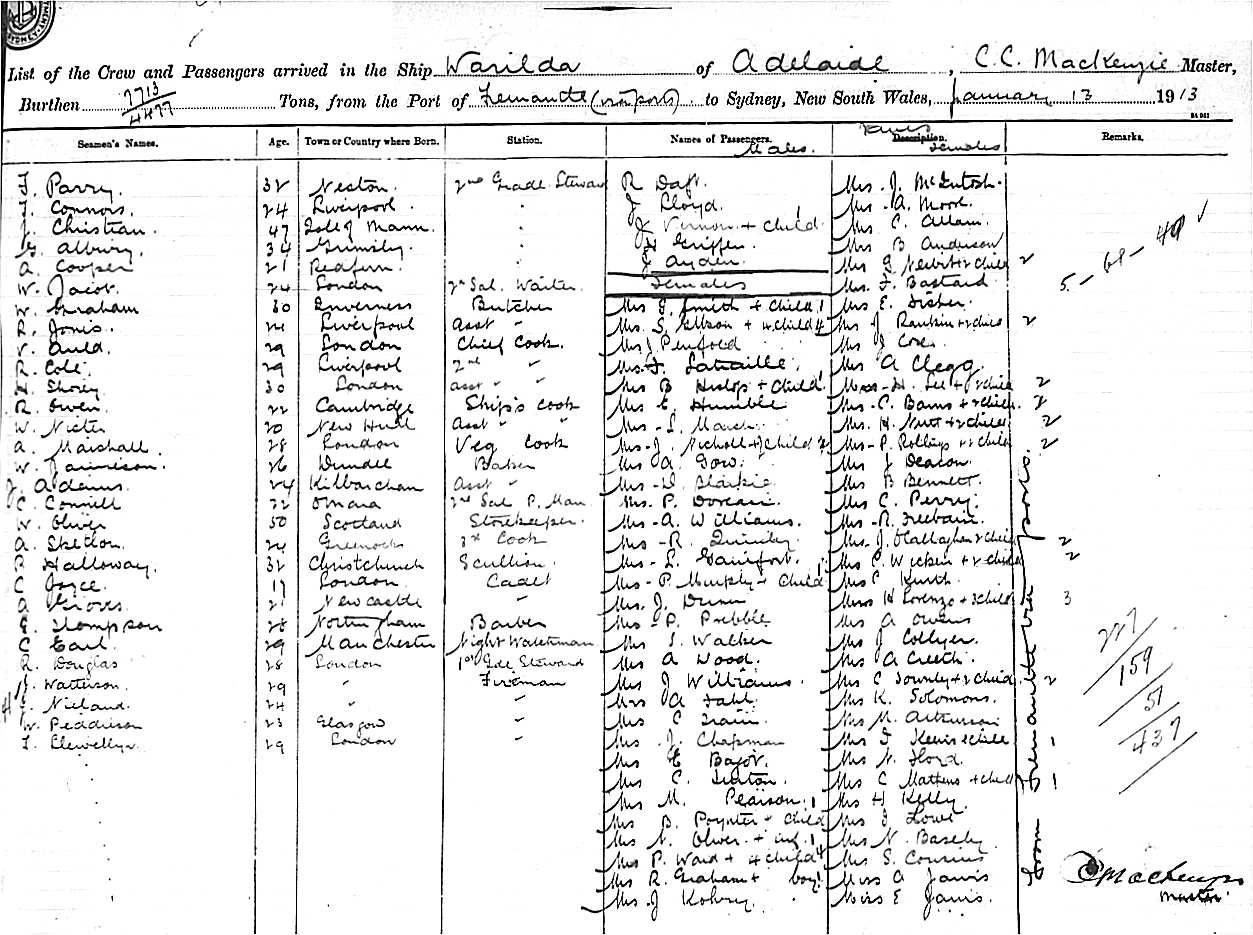 List of the Crew and Passengers arrived in the Ship Warilda of Adelaide, C.C. MacKenzie Master,
Burthen 7713/4477 Tons, from the Port of Fremantle (via ports) to Sydney, New South Wales, January 13 1913
Seamen's Names. Age. Town or Country where Born. Station. Names of Passengers. Males. Description. Females Remarks.
Parry. 32 Neston. 2nd Grade Steward R Daft. Mrs. J. McIntosh.
J. Connors. 24 Liverpool. " J Lloyd. Mrs. A. Moore.
J. Christian. 47 Isle of Mann. " J Vernon + child 1 Mrs C. Allan
G. Albury. 34 Grimsby. " H Griffen Mrs B Anderson
A. Cooper 21 Redfern. " J Ayden. Mrs G Nesbit + 2 child 2
W. Jacob. 24 London 2nd Sal. Waiter. Females Mrs. F. Bastard 5 - 68 - 49
W. Graham 30 Inverness Butcher Mrs G. Smith + child 1 Mrs E. Fisher.
R. Jones. 24 Liverpool Asst " Mrs. S. Gibson + 4 child 4 Mrs J Rankin + 2 child 2
V. Auld. 29 London Chief Cook. Mrs J Penfold Mrs J Cox.
R. Cole. 29 Liverpool 2nd " " Mrs Mrs A Clegg.
H. Storey 30 London Asst " " Mrs B Hislop + child 1 H. Lee + 2 child 2
R. Owen. 22 Cambridge Ship's Cook Mrs E. Humble Mrs. C. Barns + 2 child. 2
W. 20 New Hull Asst " " Mrs. L. March. Mrs. H. Nutt + 2 child 2
A. Marshall. 28 London Veg Cook Mrs. J. Nicholl + 2 child 2 Mrs. P. Rollings + 2 child 2
W. Jamieson. 26 Dundee Baker Mrs A. Gow. Mrs J Deacon.
J. Adams. 24 Kilbarchan Asst " Mrs. Mrs B Bennett.
C. Connell 32 Omara 2nd Sal P. Man Mrs. P. Mrs C. Perry.
W. Oliver. 50 Scotland Storekeeper. Mrs. A. Williams. Mrs. R. Freebairn.
A. Skelton. 24 Greenock 3rd Cook Mrs. R. Quimby Mrs. J. O'Callaghan + 2 child 2
P. Halloway. 32 Christchurch Scullion. Mrs. L. Gainfort. Mrs C. Wicken + 2 child 2
C. Joyce. 17 London. Cadet Mrs. P. Murphy + child 1 Mrs C Kurth.
A. Groves. 21 Newcastle " Mrs. J. Mrs H Lorenzo + 3 child 3
G. Thompson 28 Nottingham Barber Mrs. P. Prebble Mrs A Owens
C. Earl. 29 Manchester Night Watchman Mrs S. Walker Mrs J Collyer.
R. Douglas 28 London 1st Gde Steward Mrs A Wood. Mrs A Creeth.
J. Watterson. 29 " Fireman Mrs J Williams. Mrs C Townly + 2 child. 2
H J. Nieland. 24 " " Mrs A Dahl. Mrs K. Solomons.
W. Peddieson 23 Glasgow " Mrs C Train. Mrs M. Atkinson
T. Llewellyn. 29 London " Mrs. J. Chapman Mrs D Kewis + child 1
Mrs E Bajot. Mrs N. Ford.
Mrs C. Sexton. Mrs C Mathews + child 1
Mrs M. Pearson. Mrs H Kelly.
Mrs B. Poynter + child 1 Mrs J Lowe
Mrs N. Oliver + inf. 1 Mrs N. Baseby
Mrs P. Ward + 4 child 4 Mrs S. Cousins
Mrs R. Graham + boy 1 Miss A Jarvis
Mrs. J Kohry. Miss E Jarvis.
From Fremantle via ports.
227
159
51
437
C C Mackenzie
Master